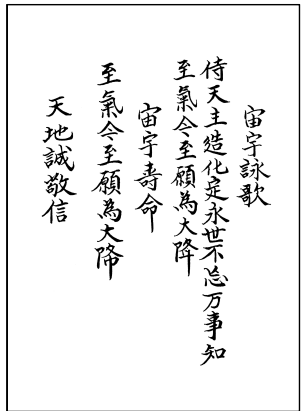 宙宇詠歌
侍天主造化定永世不忘万事知
至氣今至願為大降
宙宇壽命
至氣今至願為大降
天地誠敬信